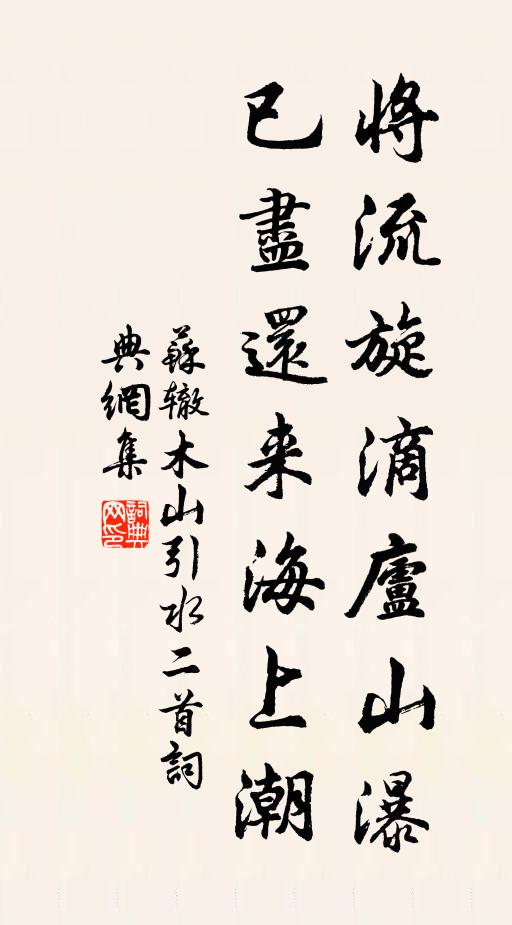 將流旋滴廬山瀑
已盡還来海上潮
蘇辙木山引水二首詞
典網集
詞典網印